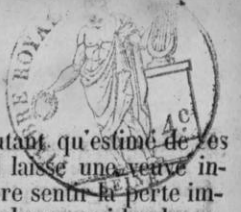 BRE ROYAL
4c
SEINE
utant qu'estimé de ses
laisse une veuve in-
re sentir la perte im-